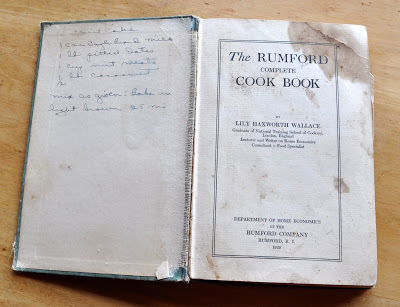 Cake
1 can Eagle brand milk
1 lb pitted dates
1 cup nut meats
1 lb cocoanut
2
mix as given: bake in
light brown 25 mi
The RUMFORD
COMPLETE
COOK BOOK
BY
LILY HAXWORTH WALLACE
Graduate of National Training School of Cookery,
London, England
Lecturer and Writer on Home Economics
Consultant Food Specialist
DEPARTMENT OF HOME ECONOMICS
OF THE
RUMFORD COMPANY
RUMFORD, R. I.